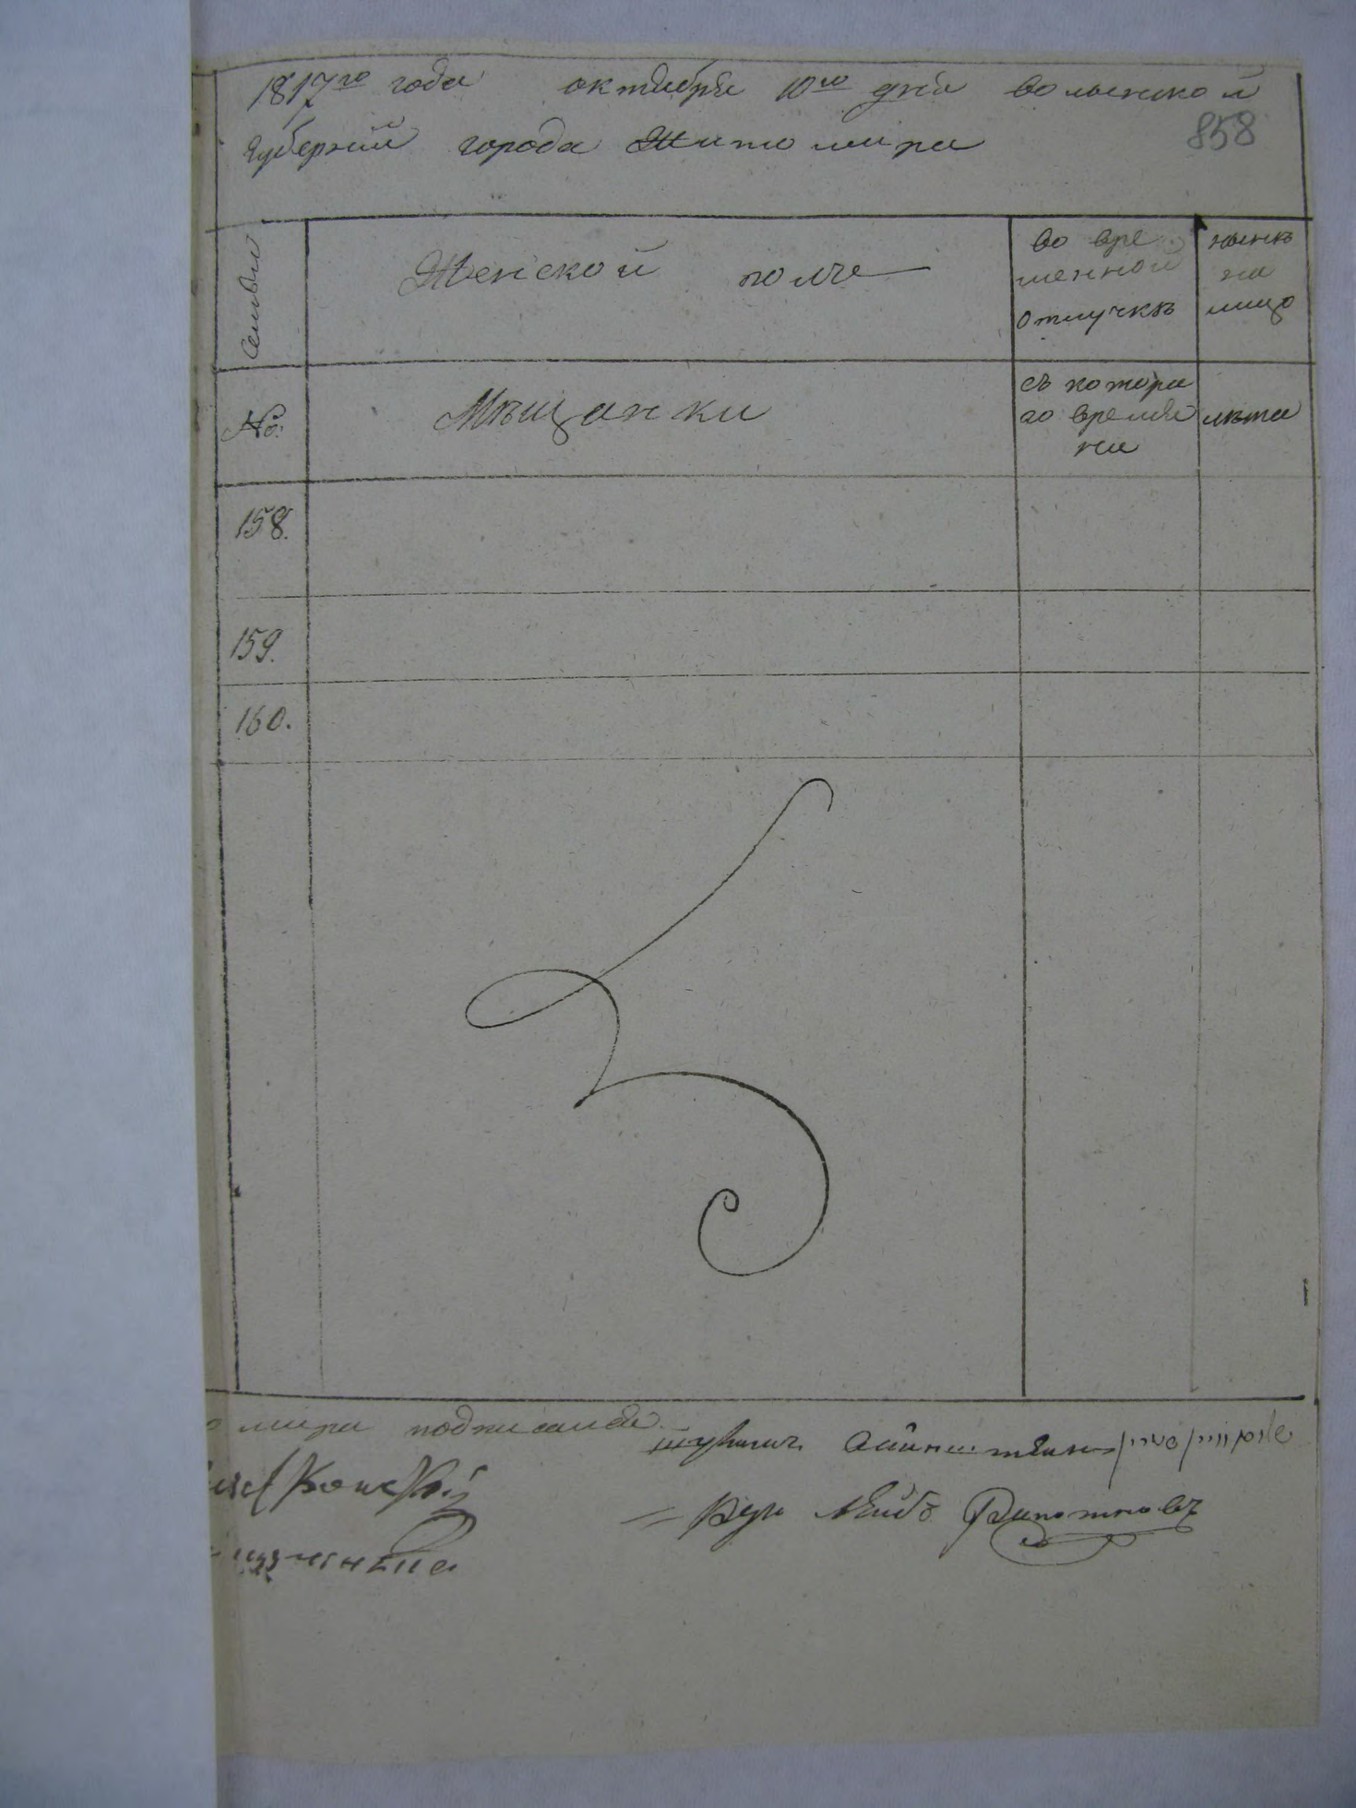 1817го года октября 10го дня волынской
858
губернии города Житомира
Семьи
Женской полъ
во вре
менной
отлучкѣ
нынѣ
на
лицо
№:
Мѣщанки
съ котора
го време
ни
лѣта
158.
159.
160.
мира подписали
Лейбъ Рапопортовъ